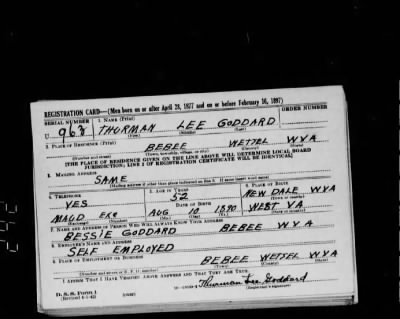 REGISTRATION CARD—(Men born on or after April 28, 1877 and on or before February 16, 1897)
SERIAL NUMBER 1. NAME (Print) ORDER NUMBER
U 963 THURMAN LEE GODDARD
(First) (Middle) (Last)
2. PLACE OF RESIDENCE (Print)
BEBEE WETZEL W VA
(Number and street) (Town, township, village, or city) (County) (State)
[THE PLACE OF RESIDENCE GIVEN ON THE LINE ABOVE WILL DETERMINE LOCAL BOARD
JURISDICTION; LINE 2 OF REGISTRATION CERTIFICATE WILL BE IDENTICAL]
3. MAILING ADDRESS
SAME
(Mailing address if other than place indicated on line 2. If same insert word same)
4. TELEPHONE 5. AGE IN YEARS 6. PLACE OF BIRTH
YES 52 NEW DALE W VA
DATE OF BIRTH (Town or county)
MAUD EXC AUG 10 1890 WEST VA
(Exchange) (Number) (Mo.) (Day) (Yr.) (State or country)
7. NAME AND ADDRESS OF PERSON WHO WILL ALWAYS KNOW YOUR ADDRESS
BESSIE GODDARD BEBEE W VA
8. EMPLOYER'S NAME AND ADDRESS
SELF EMPLOYED
9. PLACE OF EMPLOYMENT OR BUSINESS
BEBEE WETZEL W VA
(Number and street or R. F. D. number) (Town) (County) (State)
I AFFIRM THAT I HAVE VERIFIED ABOVE ANSWERS AND THAT THEY ARE TRUE.
D. S. S. Form 1 Thurman Lee Goddard
(Revised 4-1-42) (Registrant's signature)